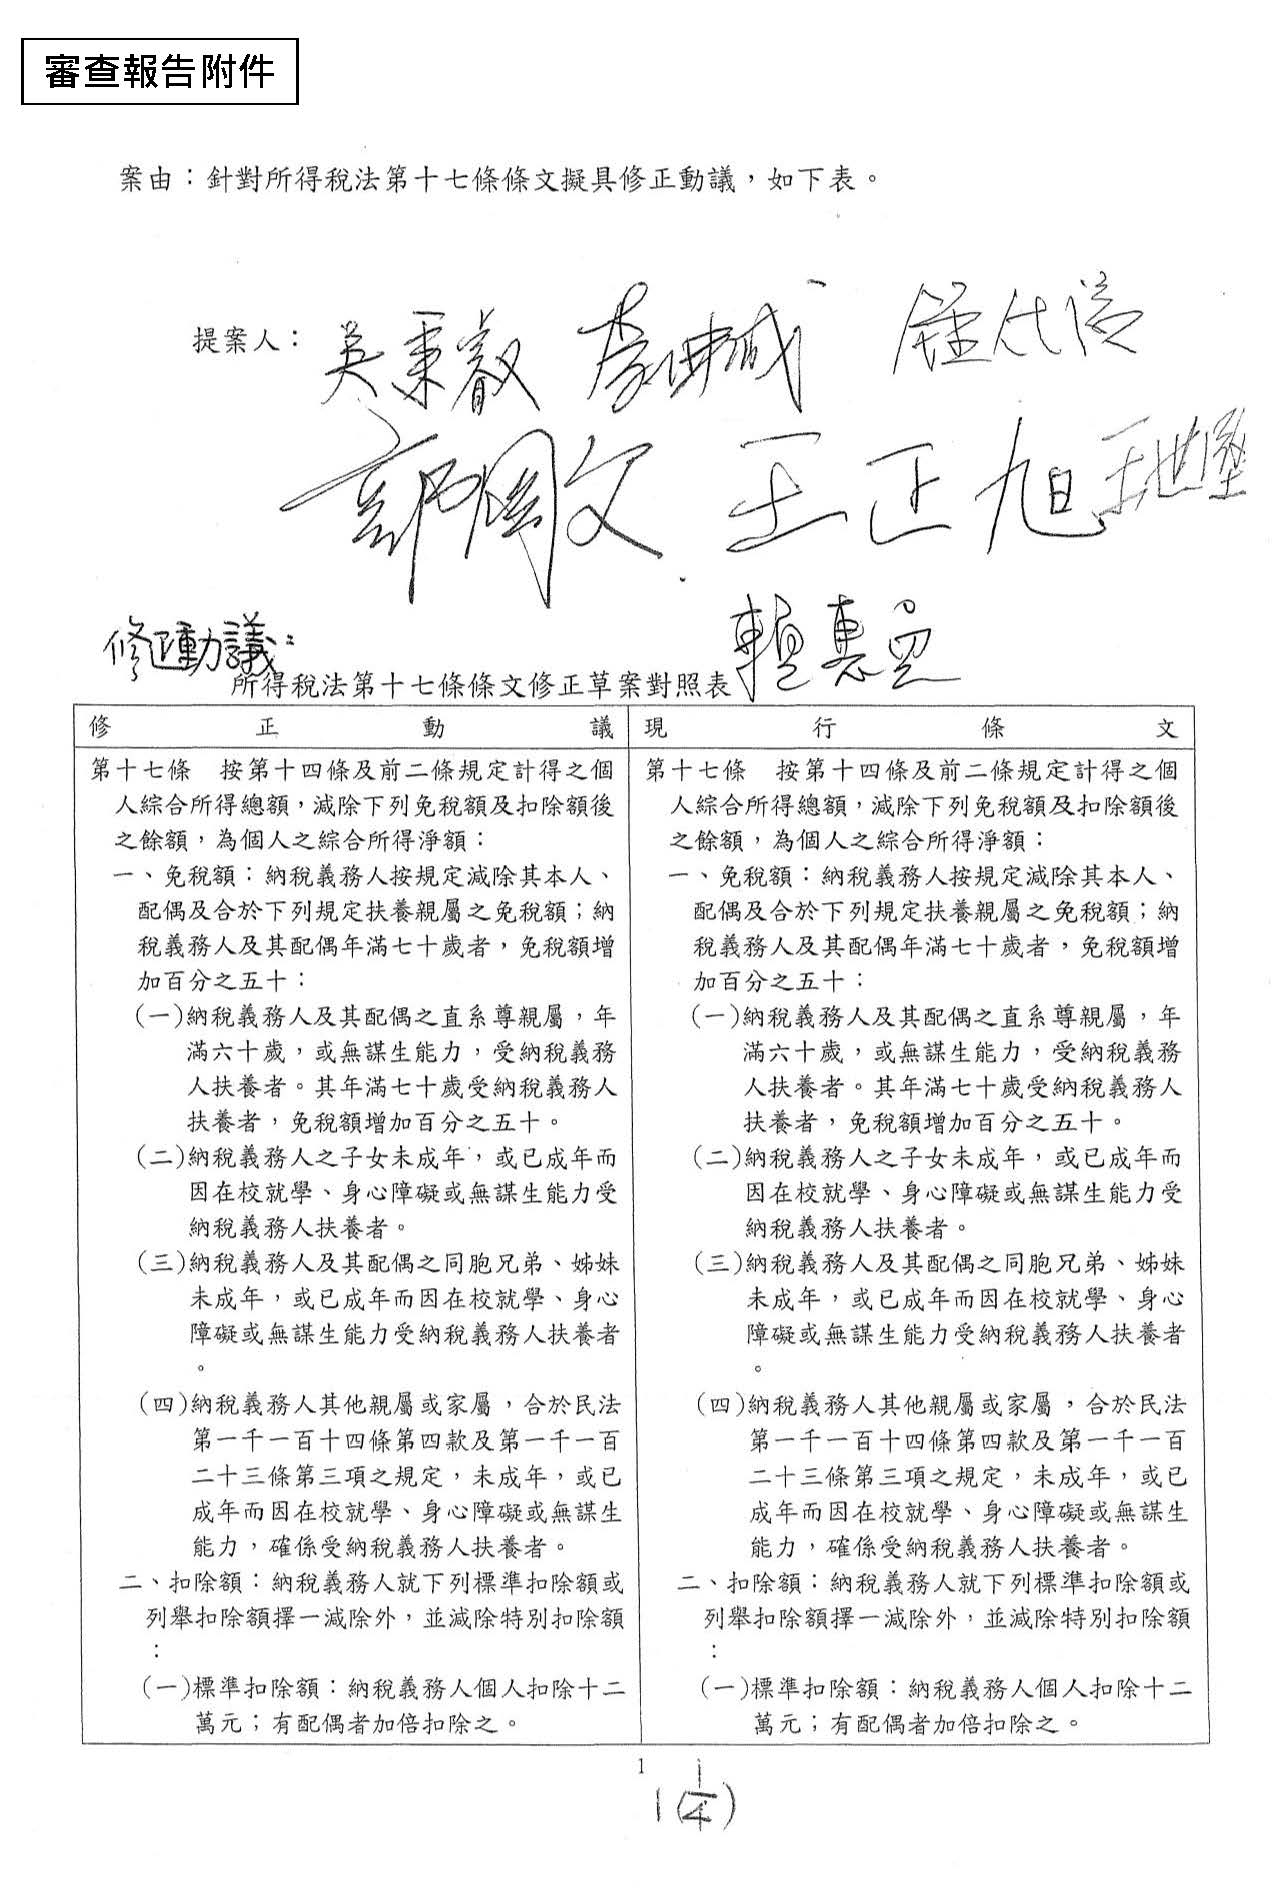 審查報告附件
案由：針對所得稅法第十七條條文擬具修正動議，如下表。
提案人：吳秉叡 李坤城 鍾佳濱
郭國文 王正旭 王世堅
賴惠員
修正動議：
所得稅法第十七條條文修正草案對照表
修正動議
第十七條　按第十四條及前二條規定計得之個
人綜合所得總額，減除下列免稅額及扣除額後
之餘額，為個人之綜合所得淨額：
一、免稅額：納稅義務人按規定減除其本人、
配偶及合於下列規定扶養親屬之免稅額；納
稅義務人及其配偶年滿七十歲者，免稅額增
加百分之五十：
(一)納稅義務人及其配偶之直系尊親屬，年
滿六十歲，或無謀生能力，受納稅義務
人扶養者。其年滿七十歲受納稅義務人
扶養者，免稅額增加百分之五十。
(二)納稅義務人之子女未成年，或已成年而
因在校就學、身心障礙或無謀生能力受
納稅義務人扶養者。
(三)納稅義務人及其配偶之同胞兄弟、姊妹
未成年，或已成年而因在校就學、身心
障礙或無謀生能力受納稅義務人扶養者
。
(四)納稅義務人其他親屬或家屬，合於民法
第一千一百十四條第四款及第一千一百
二十三條第三項之規定，未成年，或已
成年而因在校就學、身心障礙或無謀生
能力，確係受納稅義務人扶養者。
二、扣除額：納稅義務人就下列標準扣除額或
列舉扣除額擇一減除外，並減除特別扣除額
：
(一)標準扣除額：納稅義務人個人扣除十二
萬元；有配偶者加倍扣除之。
現行條文
第十七條　按第十四條及前二條規定計得之個
人綜合所得總額，減除下列免稅額及扣除額後
之餘額，為個人之綜合所得淨額：
一、免稅額：納稅義務人按規定減除其本人、
配偶及合於下列規定扶養親屬之免稅額；納
稅義務人及其配偶年滿七十歲者，免稅額增
加百分之五十：
(一)納稅義務人及其配偶之直系尊親屬，年
滿六十歲，或無謀生能力，受納稅義務
人扶養者。其年滿七十歲受納稅義務人
扶養者，免稅額增加百分之五十。
(二)納稅義務人之子女未成年，或已成年而
因在校就學、身心障礙或無謀生能力受
納稅義務人扶養者。
(三)納稅義務人及其配偶之同胞兄弟、姊妹
未成年，或已成年而因在校就學、身心
障礙或無謀生能力受納稅義務人扶養者
。
(四)納稅義務人其他親屬或家屬，合於民法
第一千一百十四條第四款及第一千一百
二十三條第三項之規定，未成年，或已
成年而因在校就學、身心障礙或無謀生
能力，確係受納稅義務人扶養者。
二、扣除額：納稅義務人就下列標準扣除額或
列舉扣除額擇一減除外，並減除特別扣除額
：
(一)標準扣除額：納稅義務人個人扣除十二
萬元；有配偶者加倍扣除之。
1
1(1/4)